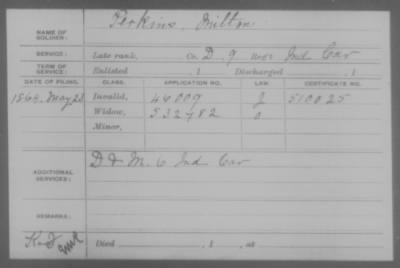 NAME OF SOLDIER: Perkins, Milton
SERVICE: Late rank, Co. D, 9 Reg't Ind Cav
TERM OF SERVICE: Enlisted , 1 Discharged , 1
DATE OF FILING. CLASS. APPLICATION NO. LAW. CERTIFICATE NO.
1864, May 21 Invalid, 46009 510025
Widow, 532782
Minor,
ADDITIONAL SERVICES: D & M. 6 Ind Cav
REMARKS:
Died , 1 , at